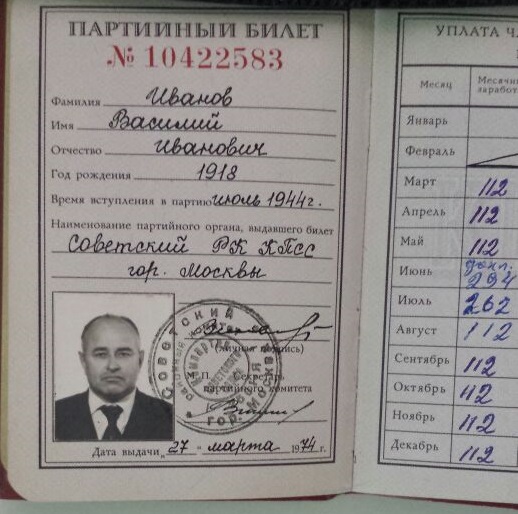 ПАРТИЙНЫЙ БИЛЕТ
№ 10422583
Фамилия Иванов
Имя Василий
Отчество Иванович
Год рождения 1918
Время вступления в партию июль 1944 г.
Наименование партийного органа, выдавшего билет
Советский РК КПСС
гор. Москвы
(личная подпись)
М.П. Секретарь
партийного комитета
Дата выдачи „27 “ марта 1974 г.
УПЛАТА ЧЛ
Месяц
Месячный
заработ
Январь
Февраль
Март 112
Апрель 112
Май 112
Июнь 294
Июль 262
Август 112
Сентябрь 112
Октябрь 112
Ноябрь 112
Декабрь 112